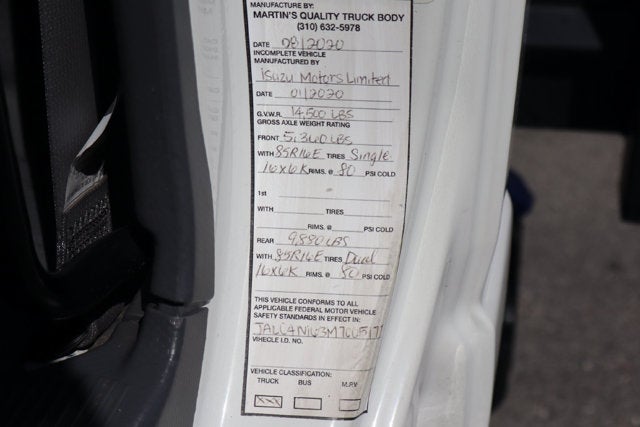 MANUFACTURE BY:
MARTIN'S QUALITY TRUCK BODY
(310) 632-5978
DATE 08/2020
INCOMPLETE VEHICLE
MANUFACTURED BY
Isuzu Motors Limited
DATE 01/2020
G.V.W.R. 14,500 LBS
GROSS AXLE WEIGHT RATING
FRONT 5,360 LBS
WITH 85R16E TIRES Single
16X6K RIMS, @ 80 PSI COLD
1st -
WITH TIRES
RIMS, @ PSI COLD
REAR 9,880 LBS
WITH 85R16E TIRES Dual
16X6K RIMS, @ 80 PSI COLD
THIS VEHICLE CONFORMS TO ALL
APPLICABLE FEDERAL MOTOR VEHICLE
SAFETY STANDARDS IN EFFECT IN:
VIHECLE I.D. NO.
VEHICLE CLASSIFICATION:
TRUCK BUS M.P.V
XXX